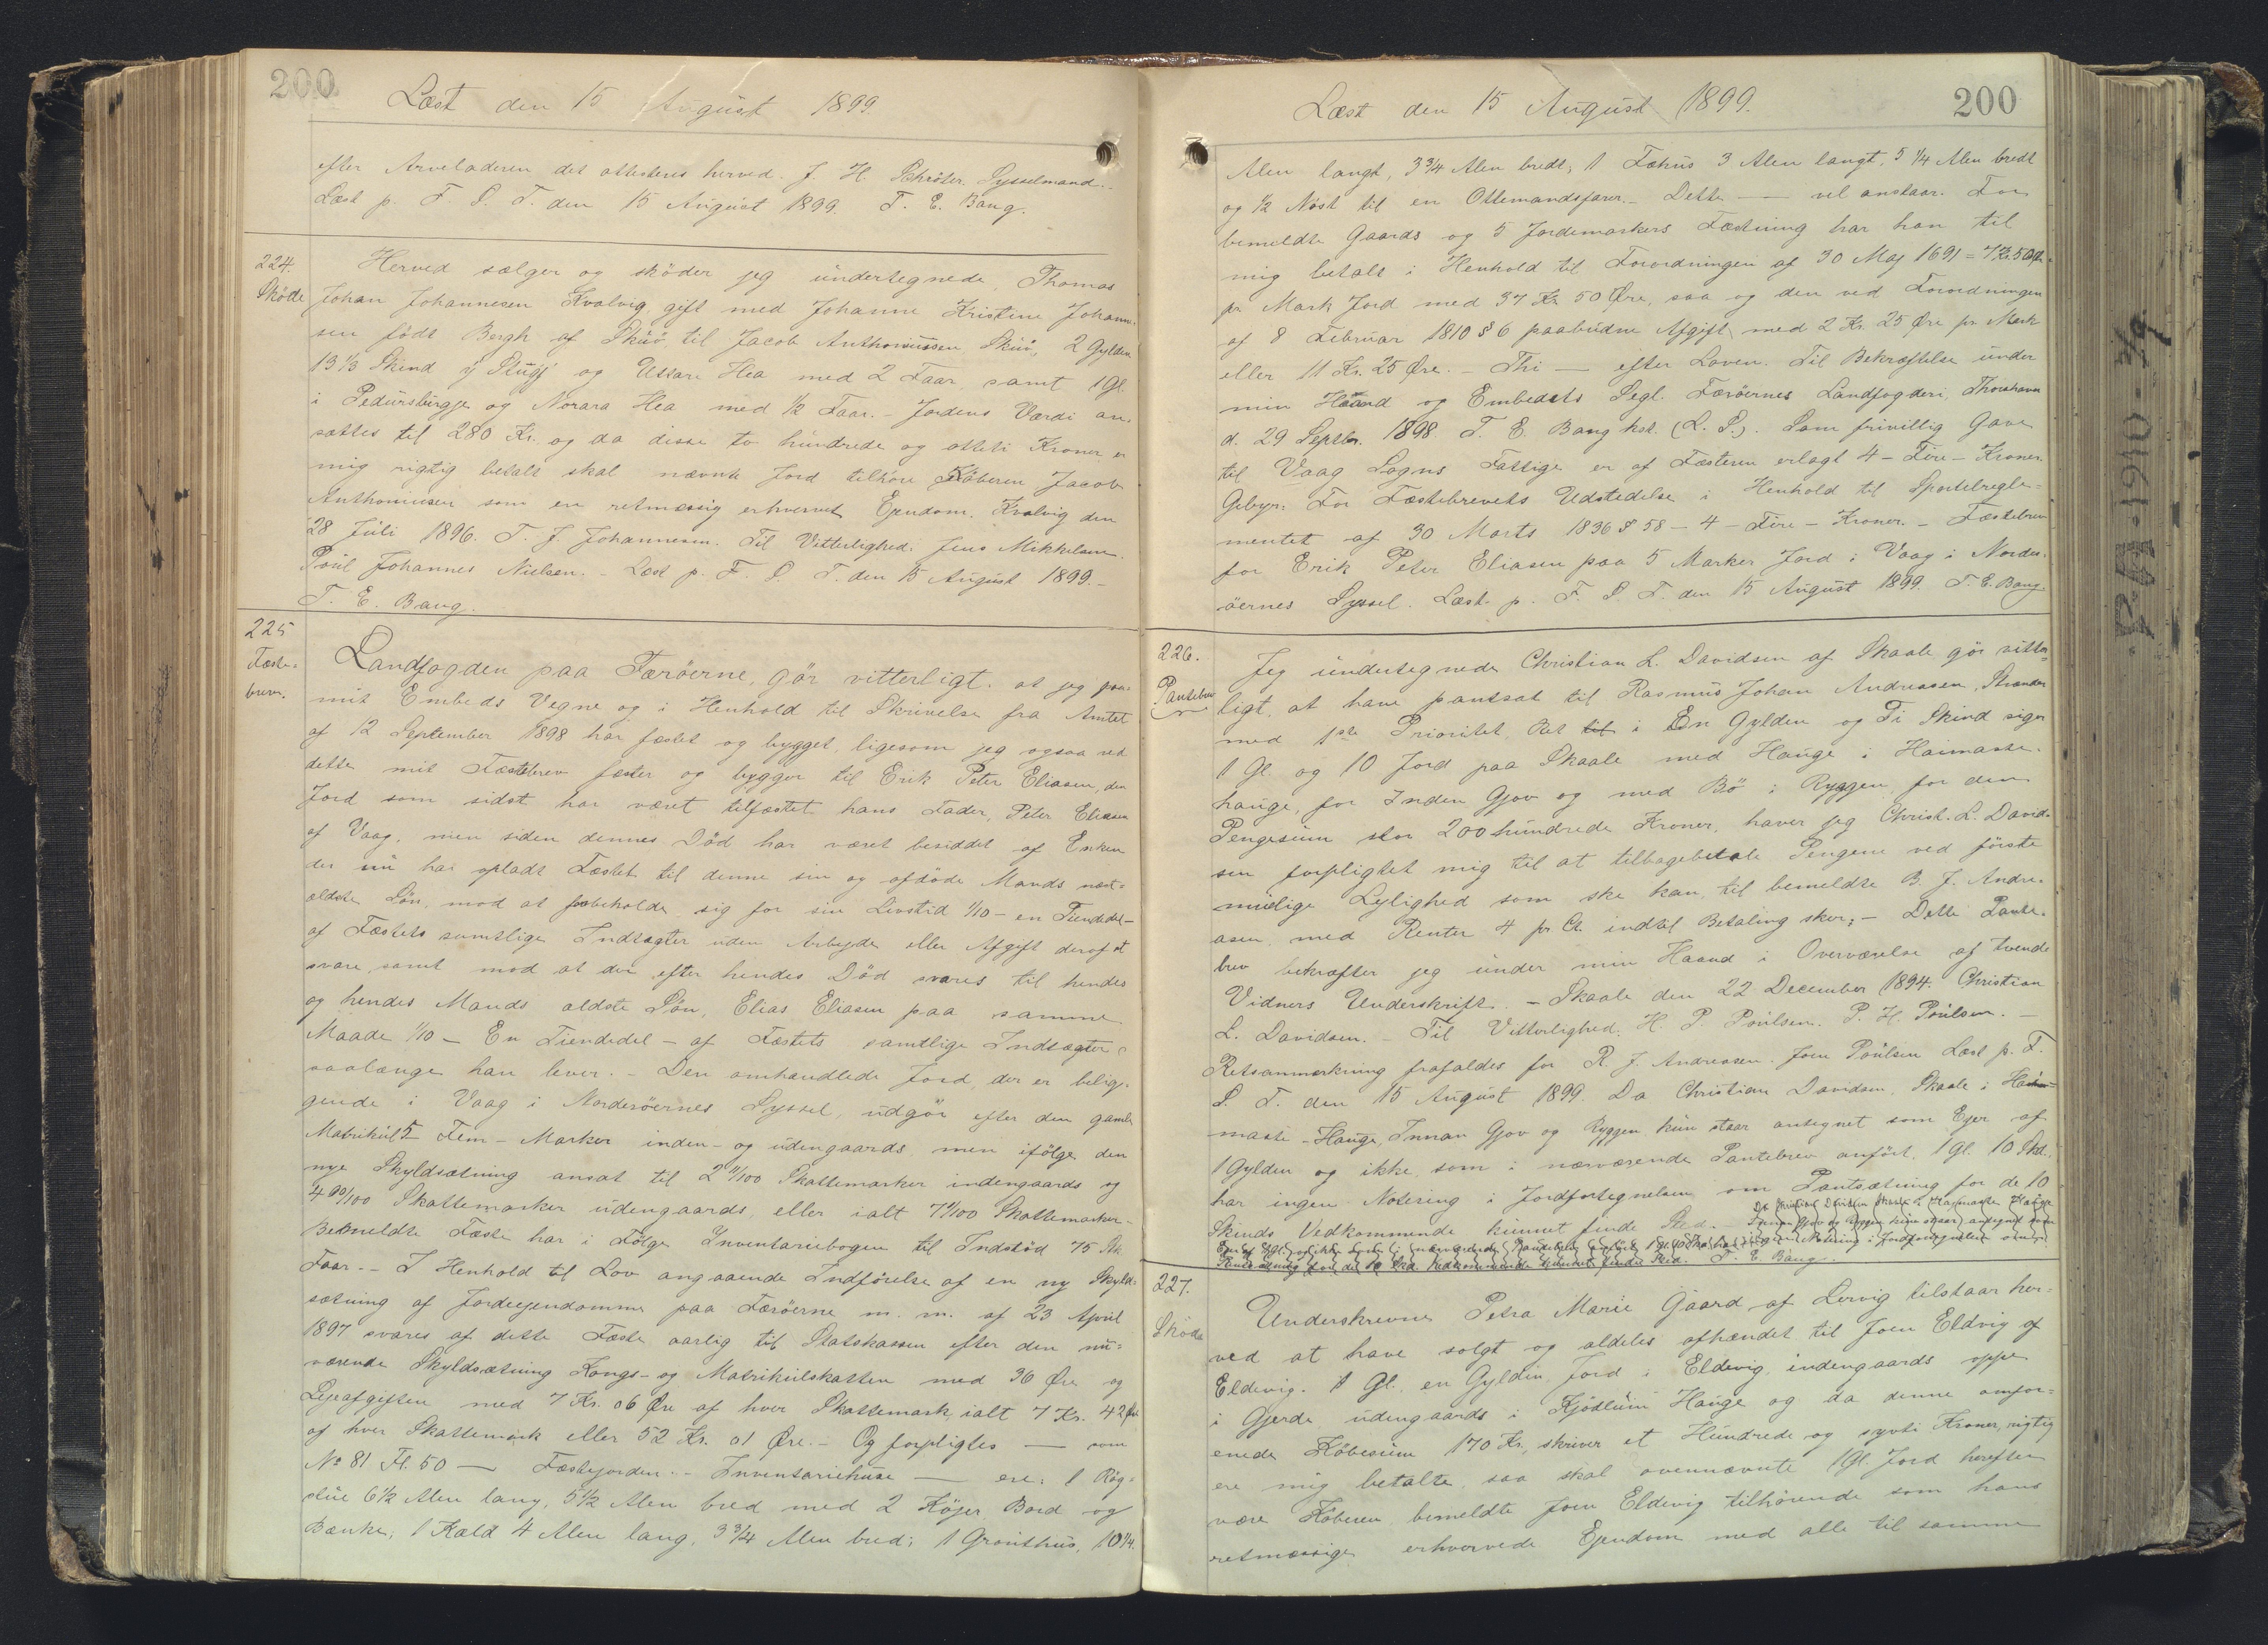 200
Læst den 15 August 1899.
efter Arveladeren det attesteres herved. J. H. Schröter. Sysselmand.
Læst p. F. S. T. den 15 August 1899. T. E. Bang.
224.
Sköde
Herved sælger og sköder jeg undertegnede, Thomas
Johan Johannesen Kvalvig, gift med Johanne Kristine Johann-
sen födt Bergh af Skúö, til Jacob Anthoniussen Skúö, 2 Gylden
13 1/3 Skind og Ussara Hea med 2 Faar samt 1 Gl.
i Pedursbirgje og Norara Hea med 1/2 Faar. - Jordens Værdi an-
sættes til 280 Kr. og da disse to hundrede og otteti Kroner er
mig rigtig betalt skal nævnte Jord tilhöre Köberen Jacob
Anthoniusen som en retmæssig erhvervet Ejendom. Kvalvig den
28 Juli 1896. T. J. Johannesen. Til Vitterlighed: Jens Mikkelsen.
Poul Johannes Nielsen. - Læst p. F. S. T. den 15 August 1899. -
T. E. Bang.
225
Fæste-
brev.
Landfogden paa Færöerne, gör vitterligt: at jeg paa
mit Embeds Vegne og i Henhold til Skrivelse fra Amtet
af 12 September 1898 har fæstet og bygget, ligesom jeg ogsaa ved
dette mit Fæstebrev fæster og bygger til Erik Peter Eliasen, den
Jord som sidst har været tilfæstet hans Fader, Peter Eliasen
af Vaag, men siden dennes Död har været besiddet af Enken
der nu har opladt Fæstet til denne sin og afdöde Mands næst-
ældste Sön, mod at forbeholde sig for sin Livstid 1/10 - en Tiendedel -
af Fæstets samtlige Indtægter uden Arbejde eller Afgift deraf at
svare, samt mod at der efter hendes Död svares til hendes
og hendes Mands ældste Sön, Elias Eliasen paa samme
Maade 1/10 - En Tiendedel - af Fæstets samtlige Indtægter
saalænge han lever. - Den omhandlede Jord, der er belig-
gende i Vaag i Norderöernes Syssel, udgör efter den gamle
Matrikul 5 Fem - Marker inden- og udengaards, men ifölge den
nye Skyldsætning ansat til 2 11/100 Skattemarker indengaards og
4 90/100 Skattemarker udengaards, eller ialt 7 1/100 Skattemarker -
Bemeldte Fæste har i Fölge Inventariebogen til Indstöd 75 Stk
Faar. - I Henhold til Lov angaaende Indförelse af en ny Skyld-
sætning af Jordejendomme paa Færöerne m. m. af 23 April
1897 svares af dette Fæste aarlig til Statskassen efter den nu-
værende Skyldsætning Kongs- og Matrikulskatten med 36 Öre og
Lejeafgiften med 7 Kr. 06 Öre af hver Skattemark, ialt 7 Kr. 42 Öre
af hver Skattemark eller 52 Kr. 01 Öre. - Og forpligtes — som
No 81 Fl. 50 — Fæstejorden. - Inventariehuse — ere: 1 Rög-
stue 6 1/2 Alen lang, 5 1/2 Alen bred med 2 Köjer, Bord og
Bænke; 1 Kæld 4 Alen lang, 3 3/4 Alen bred; 1 Grouthús, 10 1/4
Læst den 15 August 1899.
200
Alen langt, 3 3/4 Alen bredt; 1 Fæhus 3 Alen langt, 5 1/4 Alen bredt
og 1/2 Nöst til en Ottemandsfarer. - Dette — vel anstaar. For
bemeldte Gaards og 5 Jordemarkers Fæstning har han til
mig betalt i Henhold til Forordningen af 30 Maj 1691 = 7 Kr. 50 Öre
pr Mark Jord med 37 Kr 50 Öre, saa og den ved Forordningen
af 8 Februar 1810 § 6 paabudne Afgift med 2 Kr. 25 Öre pr Mark
eller 11 Kr. 25 Öre. - Thi — efter Loven. Til Bekræftelse under
min Haand og Embedets Segl. Færöernes Landfogderi, Thorshavn
d. 29 Septbr. 1898 T. E. Bang kst. (L. S.). Som frivillig Gave
til Vaag Sogns Fattige er af Fæsteren erlagt 4 - Fire - Kroner.
Gebyr: For Fæstebrevets Udstedelse i Henhold til Sportelregle-
mentet af 30 Marts 1836 § 58 - 4 - Fire - Kroner. - Fæstebrev
for Erik Peter Eliasen paa 5 Marker Jord i Vaag i Norder-
öernes Syssel. Læst p. F. S. T. den 15 August 1899. T. E. Bang
226.
Pantebrev
Jeg undertegnede Christian L. Davidsen af Skaale gör vitter-
ligt, at have pantsat til Rasmus Johan Andreasen, Strander
med 1ste Prioritet Ret til i En Gylden og Ti Skind siger
1 Gl. og 10 Jord paa Skaale med Hauge i Haimaste-
hauge, for Inden Gjov og med Bö i Ryggen, for den
Pengesum stor 200 hundrede Kroner, haver jeg Christ. L. David-
sen forpligtet mig til at tilbagebetale Pengene ved förste
muelige Lylighed som ske kan, til bemeldte R. J. Andre-
asen, med Renter 4 pr Ct. indtil Betaling sker; - Dette Pante-
brev bekræfter jeg under min Haand i Overværelse af tvende
Vidners Underskrift. - Skaale den 22 December 1894. Christian
L. Davidsen. - Til Vitterlighed: H. P. Poulsen. P. H. Poulsen. -
Retsanmærkning frafaldes for R. J. Andreasen. Joen Poulsen Læst p. F.
S. T. den 15 August 1899. Da Christian Davidsen, Skaale i Hei-
maste-Hauge, Innan Gjov og Ryggen kun staar antegnet som Ejer af
1 Gylden og ikke, som i nærværende Pantebrev anfört, 1 Gl. 10 Skd.
har ingen Notering i Jordfortegnelsen om Pantsætning for de 10
Skinds Vedkommende kunnet finde Sted. - Da Christian Davidsen Skaale i Haimaste Hauge
Innan Gjov og Ryggen kun staar antegnet som
Ejer af 1 Gl. og ikke som i nærværende Pantebrev anfört 1 Gl. 10 Skd har ingen Notering i Jordfortegnelsen om
Pantsætning for de 10 Skd. Vedkommende kunnet finde Sted. T. E. Bang.
227.
Sköde
Underskrevne Petra Marie Gaard af Lervig tilstaar her-
ved at have solgt og aldeles afhændet til Joen Eldvig af
Eldevig. 1 Gl. en Gylden Jord i Eldevig, indengaards oppe
i Gjerde, udengaards i Kjödlum Hauge og da denne omfor-
enede Köbesum 170 Kr. skriver et Hundrede og syvti Kroner, rigtig
ere mig betalte, saa skal ovennævnte 1 Gl. Jord herefter
være Köberen bemeldte Joen Eldevig tilhörende som hans
retmæssige erhvervede Ejendom med alle til samme